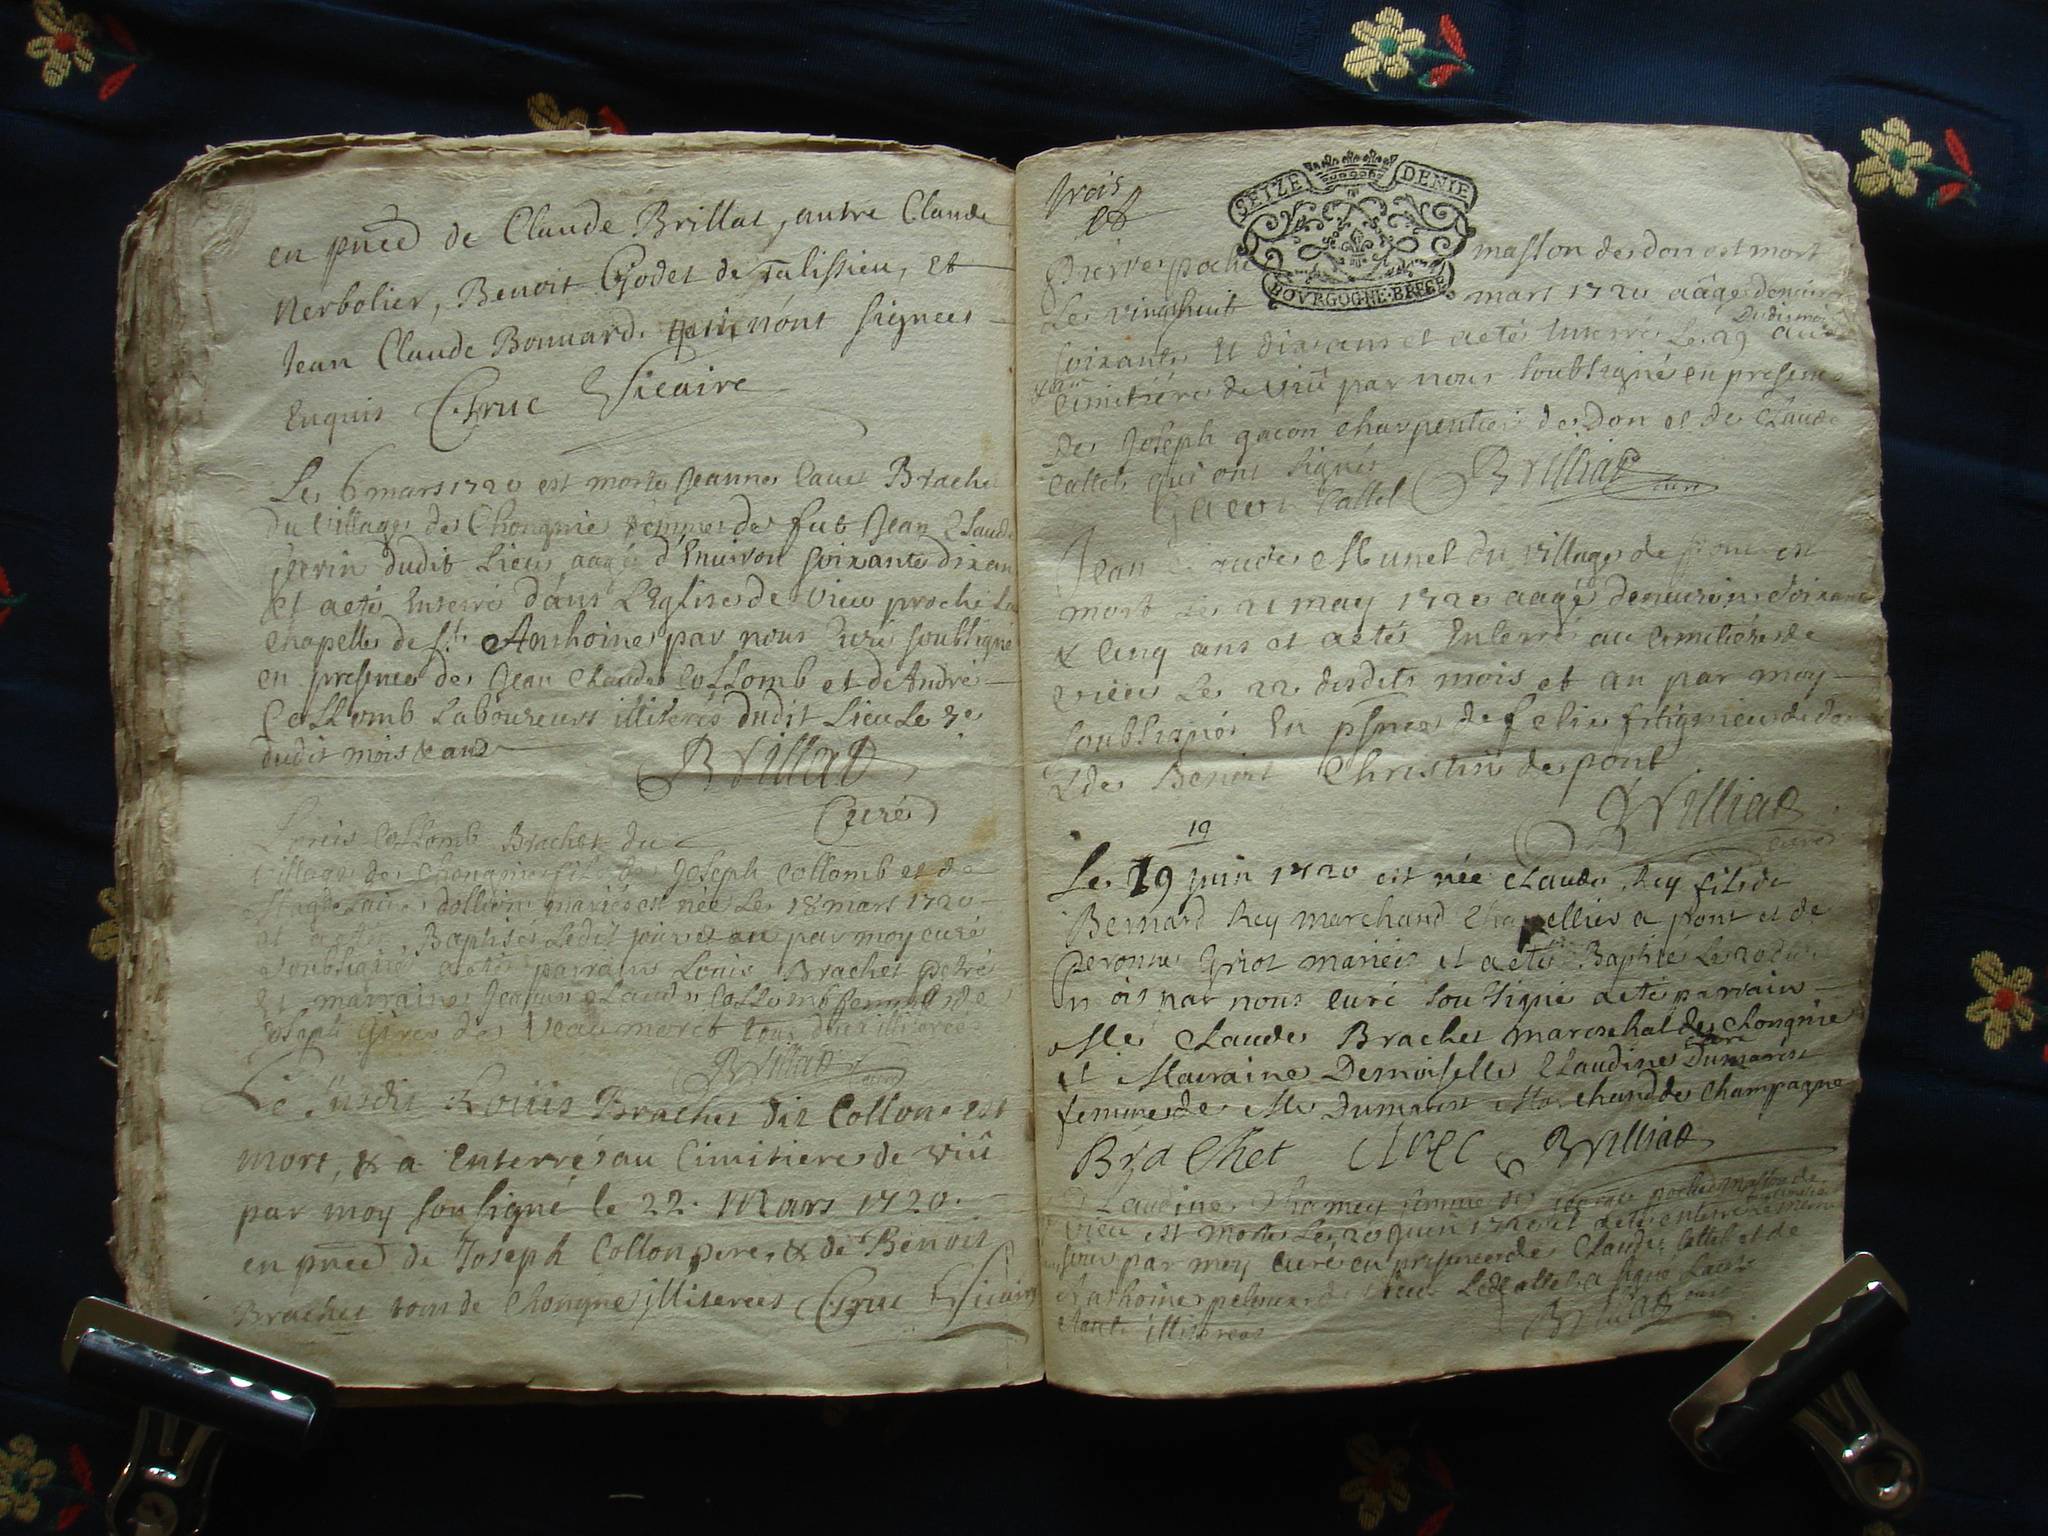 en pnce de Claude Brillat, autre Claude
Nerbolier, Benoit Godet de Talissieu, et
Jean Claude Bonnard qui nont signees
Enquis Gruc Vicaire
Le 6 mars 1720 est morte Jeanne Brachet
du village de Chongnie femme de fut Jean Claude
perin dudit lieu aagé d'Enuiron soixante dix an
et aeté Enterré dans L'Eglise de vieu proche La
chapelle de St Anthoine par nous curé soubsigné
en presence de Jean Claude Collomb et de André
Collomb Laboureurs illiteres dudit Lieu Le 7e
dudit mois & an
Brillat
Curé
Louis Collomb Brachet du
village de Chongnie fils de Joseph Collomb et de
mariés est née Le 18 mars 1720
et aeté Baptisé Ledit jour et an par moy curé
soubsigné aeté parrain Louis Brachet
et marraine Jeanne Claude Collomb femme de
Joseph de tous deux illiterés
Brillat curé
Le susdit Louis Brachet dit Collon est
mort, & a Enterré au Cimitiere de viû
par moy sousigné le 22. Mars 1720.
en pnce de Joseph Collon pere, & de Benoit
Brachet tous de Chongne illiterees Gruc Vicaire
trois
et
SEIZE DENIE
BOVRGOGNE·BRECE
Pierre poche masson de don est mort
Le vingthuit mars 1720 aagé denuiron
soixante et dix ans et aeté Enterré Le 29 dudit mois au
cimitiére de viû par nous soubsigné en presence
de Joseph gacon charpentier de Don et de Claude
Cattel qui ont signés
Gacon Cattel Brilliat curé
Jean Claude Munet du village de pont est
mort Le 21 may 1720 aagé denuiron soixante
& cinq ans et aeté Enterré au cimitiére de
vieu Le 22 desdits mois et an par moy
soubsigné En pnce de felix de
& de Benoit Christin de pont
Brilliat
curé
19
Le 19 juin 1720 est née Claude Rey fils de
Bernard Rey marchand Chapellier a pont et de
peronne mariés et aeté Baptisé Le 20 du
mois par nous curé soussigné aeté parrain
Me Claude Brachet mareschal de Chongnie
et Marraine Demoiselle Claudine Dumarest
femme de Me Dumarest Marchand de Champagne
Brachet Brilliat
Claudine femme de poche masson de
vieu est morte Le 20 juin 1720 et aeté enterré
jour par moy curé en presence de Claude Cattel et de
Anthoine de vieu Ledit Cattel a signé
illiterés
Brilliat curé